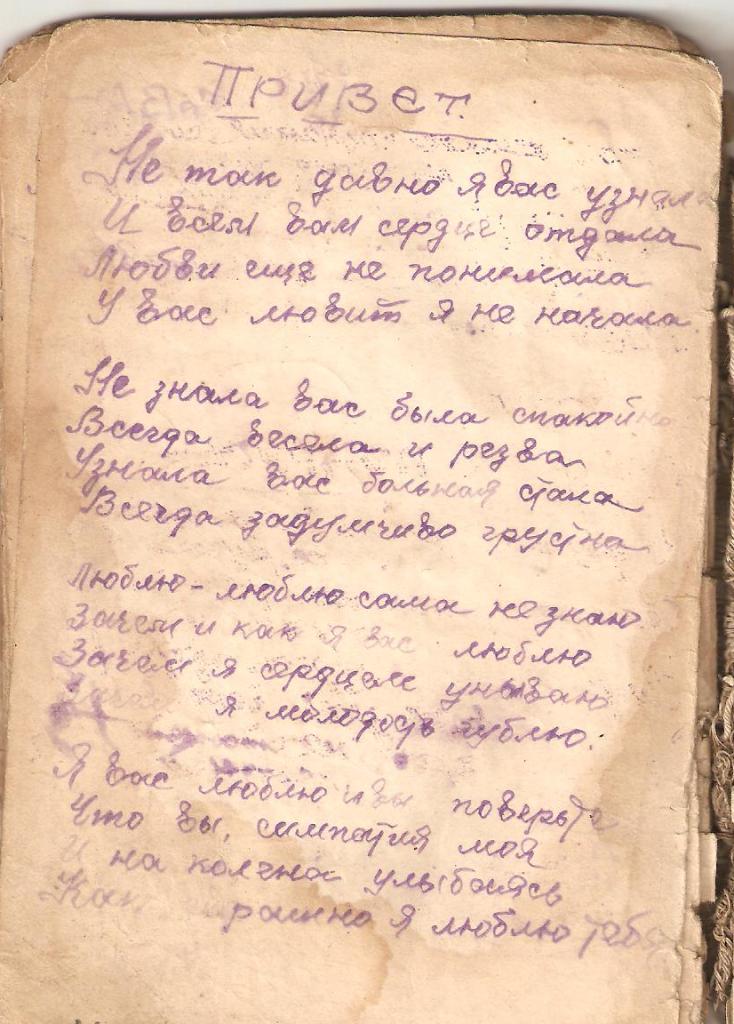 ПРИВЕТ.
Не так давно я вас узнала
И всем вам сердце отдала
Любви еще не понимала
У вас любит я не начала
Не знала вас была спакойна
Всегда весела и резва
Узнала вас больная стала
Всегда задумчиво грустна
Люблю-люблю сама не знаю
Зачем и как я вас люблю
Зачем я сердцем унываю
Зачем я молодость гублю.
Я вас люблю и вы поверьте
Что вы, симпатия моя
И на колена улыбаясь
Как я люблю тебя